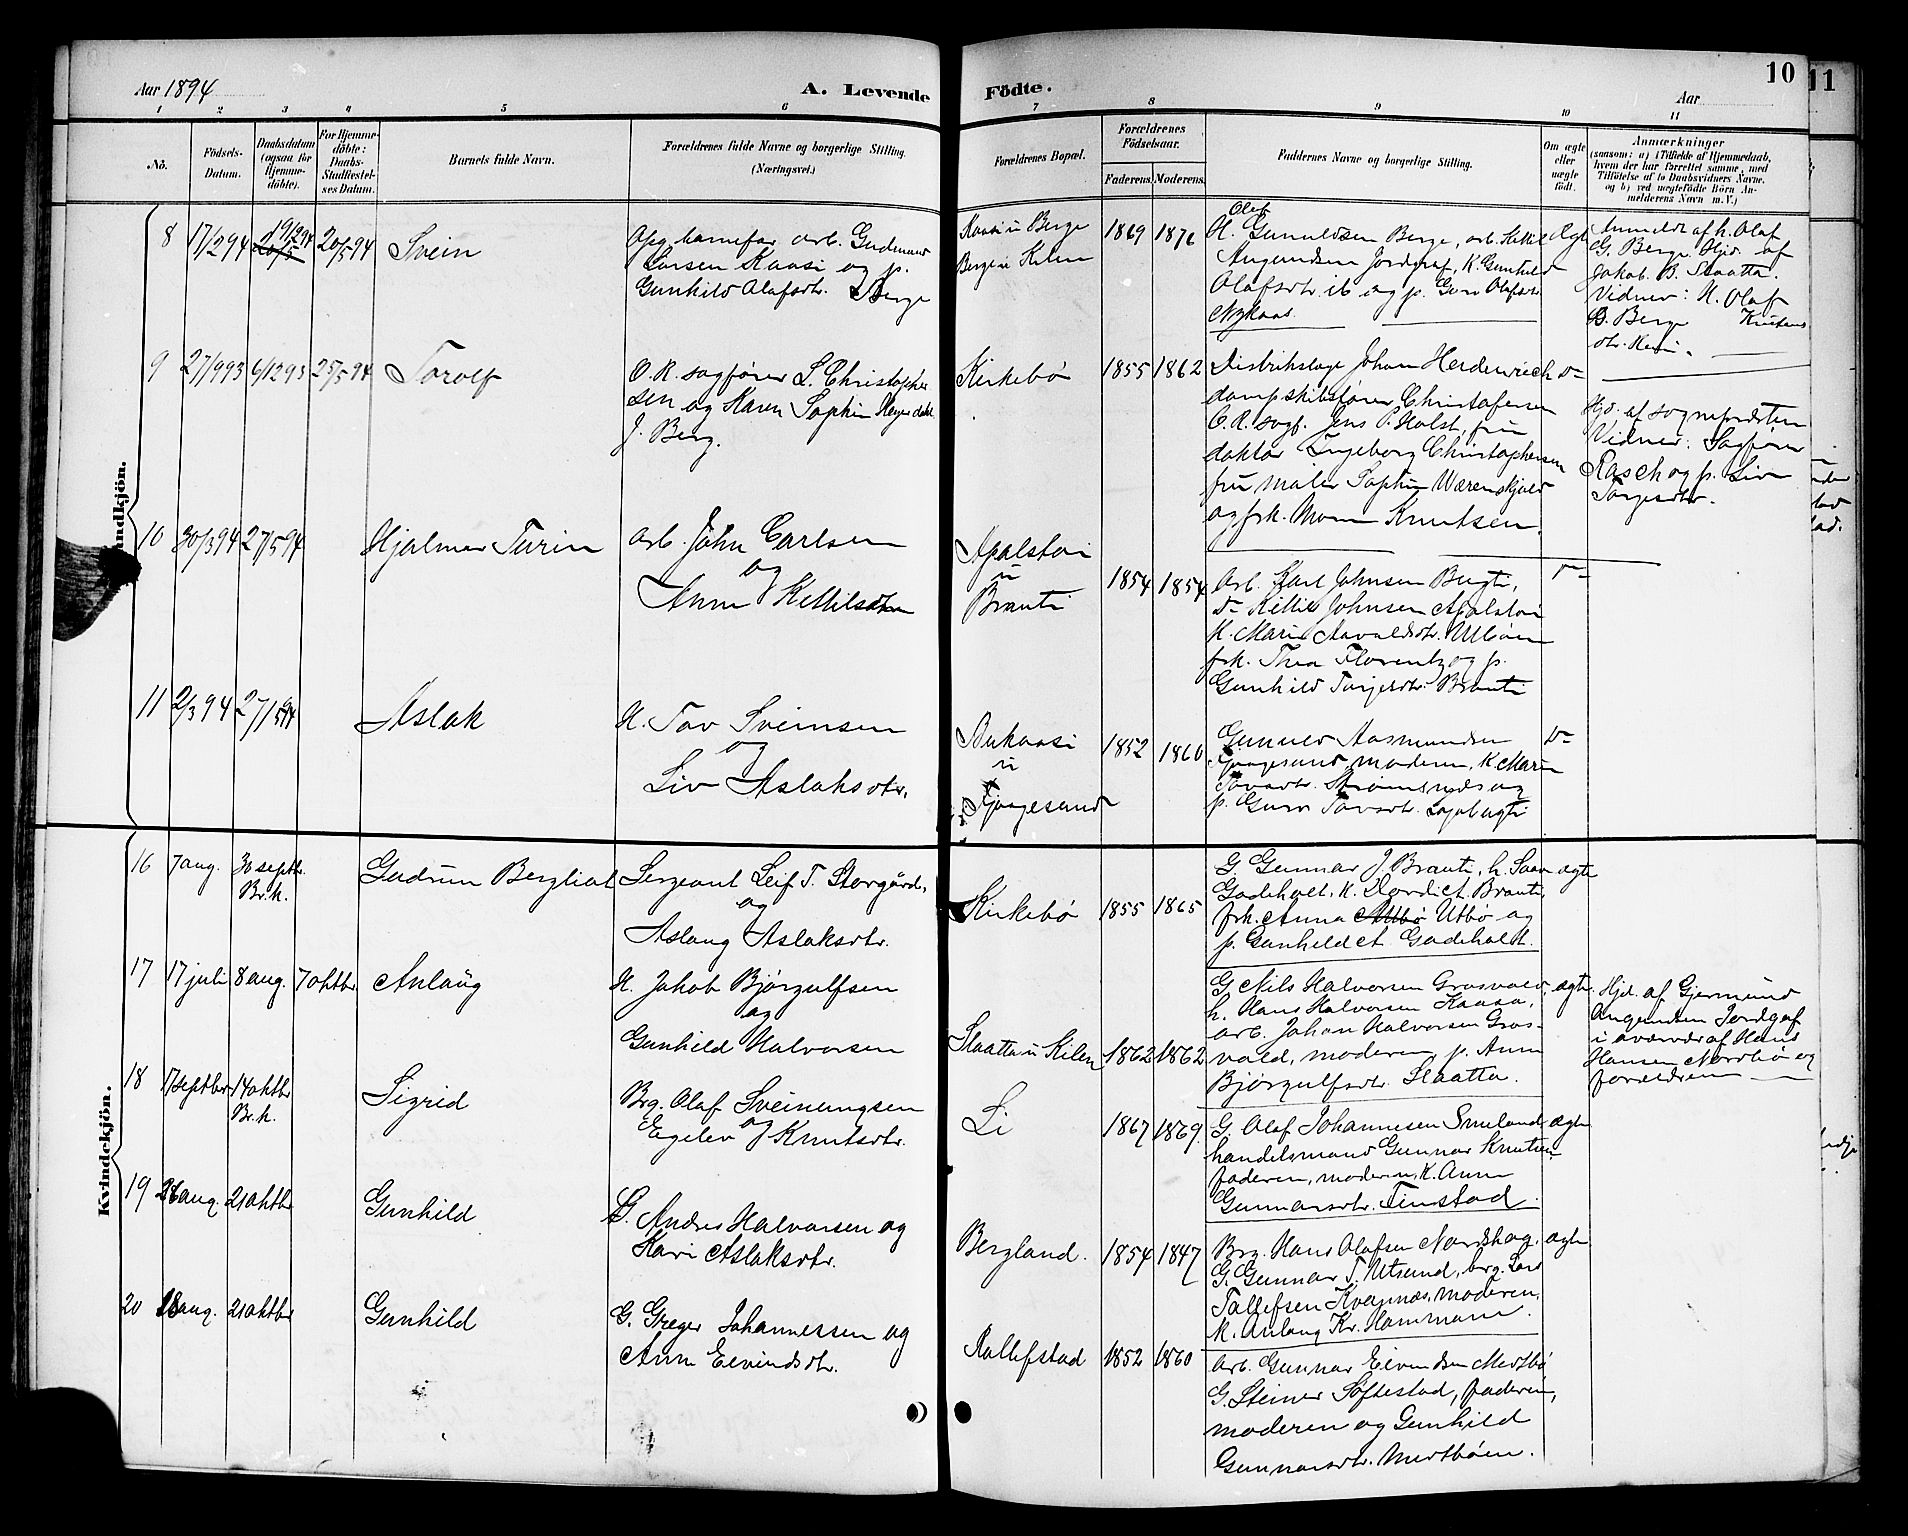 Aar 1894
A. Levende
Födte.
Aar
10
11
1 2 3 4 5 6 7 8 9 10 11
No.
Födsels-
Datum.
Daabsdatum
(ogsaa for
Hjemme-
döbte).
For Hjemme-
döbte:
Daabs-
Stadfæstel-
ses Datum.
Barnets fulde Navn.
Forældrenes fulde Navne og borgerlige Stilling.
(Næringsvei.)
Forældrenes Bopæl.
Forældrenes
Födselsaar.
Faderens. Moderens.
Faddernes Navne og borgerlige Stilling.
Om ægte
eller
uægte
födt.
Anmærkninger
(saasom: a) i Tilfælde af Hjemmedaab,
hvem der har forrettet samme, med
Tilföielse af to Daabsvidners Navne,
og b) ved uægtefödte Börn An-
melderens Navn m. V.)
8 17/2 94 19/2 94 20/5 94 Svein
Larsen Kaasi og p.
Gunhild Olafsdtr. Berge
Kaasi u Berge
Berge u Kilen
1869 1876
Olaf
K. Gunuldsen Berge, arb. Kittil
Angundsen Jordgraf, K. Gunhild
Olafsdtr. ib og p. Guro Olafsdtr.
Nykaas
Ægte
Anmeldt af h. Olaf
G. Berge. Hjd. af
Jakob B. Slaatta.
Vidner: K. Olaf
G. Berge
9 27/9 93 6/12 93 25/5 94 Torolf
O. R. sagfører L. Christopher
sen og Karen Sophie
J. Berg.
Kirkebø
1855 1862
Distriktslæge Johan Heidenreich
dampskibsfører Christofersen
O. R. sagf. Jens P. Holst, fru
doktor Ingeborg Christophersen
fru maler Sophie Wærenskjold
og frk. Mom Knutsen.
Hjd. af sognepræsten
Vidner: Sagfører
Rasch og p. Liv
Torgesdtr.
Mandkjön.
10 30/3 94 27/5 94 Hjalmer Turin
arb. John Carlsen
og
Anne Kittilsdtr
Apalstoi
u
Brauti
1854 1854
Arb. Karl Johnsen Bugti,
d- Kittil Johnsen Apalstoi
K. Marie Aavaldsdtr. Utbøen
frk. Thea Florentz og p.
Gunhild Torjersdtr. Brauti
11 2/3 94 27/5 94 Aslak
K. Tov Sveinsen
og
Liv Aslaksdtr.
Bukaasi
u
Tjaagesund
1852 1860
Gunuld Aasmundsen
Tjaagesund, moderen, K. Maren
Tovsdtr. Strømsnæs og
p. Guro Tovsdtr.
Kvindekjön.
16 7 aug. 30 septbr. Br. k. Gudrun Bergliot
Sergeant Leif T. Storgård,
og
Aslaug Aslaksdtr.
Kirkebø
1855 1865
G. Gunnar J. Brauti, h. Saave
Gadeholt, K. Dordi ct. Brauti,
frk. Anna Utbø og
p. Gunhild ct. Gadeholt.
ægte
17 17 juli 8 aug. 7 oktbr. Anlaug
K. Jakob Bjørgulfsen
og
Gunhild Halvorsen
Slaatta u Kilen
1862 1862
G. Nils Halvorsen Grosvold,
h. Hans Halvorsen Kaasa,
arb. Johan Halvorsen Gros-
vold, moderen, p. Anne
Bjørgulfsdtr. Slaatta.
ægte
Hjd. af Gjermund
Angundsen Jordgraf
i overvær af Hans
Hansen Nordbø og
forældrene
18 17 septbr. 14 oktbr. Br. k. Sigrid
Brg. Olaf Sveinungsen
og
Egelev Knutsdtr.
Li
1867 1869
G. Olaf Johannesen Smeland
handelsmand Gunnar Knutsen
faderen, moderen, K. Anne
Gunnarsdtr. Tinstad
ægte
19 26 aug. 21 oktbr. Gunhild
G. Andres Halvorsen og
Kari Aslaksdtr.
Bergland.
1854 1847
Brg. Hans Olafsen Nordskog,
G. Gunnar T. Utsund, brg. Lars
Tallefsen Kvepnæs, moderen,
K. Anlaug Kr. Hammaren.
ægte
20 28 aug. 21 oktbr. Gunhild
G. Greger Johannessen og
Anne Eivindsdtr.
Rollefstad
1852 1860
Arb. Gunnar Eivindsen Mertbø
G. Steiner Søftestad, faderen,
moderen og Gunhild
Gunnarsdtr. Mertbøen.